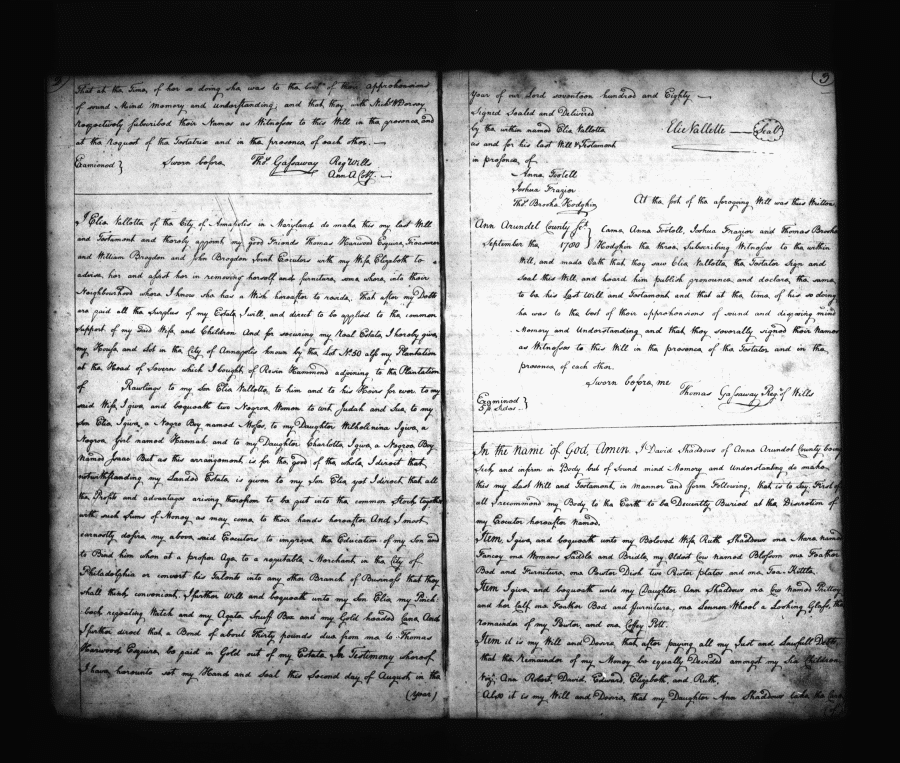 That at the Time, of her so doing she was to the best of their Apprehensions
of sound Mind Memory and Understanding, and that they, with Nichs. W Dorsey
respectively subscribed their Names as Witnesses to this Will in the presence, and
at the request of the Testatrix and in the presence, of each other. —
Examioned } Sworn before Thos. Gassaway Regr Wills
Ann A Coty. —
I Elie Vallette of the City of Annapolis in Maryland do make this my last Will
and Testament and thereby appoint my good Friends Thomas Harwood Esquire, Treasurer
and William Brogden and John Brogden Joint Executors with my Wife Elizabeth to
advise, her and assist her in removing herself and furniture, some where, into their
Neighbourhood where I know she has a Wish hereafter to reside, That after my Debts
are paid all the Surplus of my Estate, I will, and direct to be applied to the common
Support of my said Wife, and Children And for securing my Real Estate, I hereby give,
my House and Lot in the City of Annapolis known by the Lot No 50 also my Plantation
at the Head of Severn which I bought of Rezin Hammond adjoining to the Plantation
of Rawlings to my Son Elie Vallette, to him and to his Heirs for ever to my
said Wife, I give, and bequeath two Negroe Women to wit, Judah and Sue, to my
Son Elie, I give, a Negro Boy named Moses, to my Daughter Wilhelmina I give, a
Negroe Girl named Hannah and to my Daughter Charlotte I give, a Negroe Boy
Named Isaac But as this arrangement is for the good of the whole, I direct that
notwithstanding, my Landed Estate is given to my Son Elie yet I direct that all
the Profits and advantages arriving therefrom to be put into the common Stock, together
with such Sums of Money as may come, to their hands hereafter And I most
earnestly desire, my above said Executors, to improve, the Education of my Son and
to Bind him when at a proper Age to a reputable, Merchant, in the City of
Philadelphia or convert his Talents into any other Branch of Business that they
shall think, convenient, I further Will and bequeath unto my Son Elie, my Pinch-
back repeating Watch and my Agate Snuff Box and my Gold headed Cane, And
I further direct that a Bond of about Thirty pounds due from me to Thomas
Harwood Esquire, be paid in Gold out of my Estate. In Testimony whereof
I have, hereunto set my Hand and Seal this Second day of August in the
(year)
3
Year of our Lord seventeen hundred and Eighty —
Signed Sealed and Delivered
by the within named Elie Vallette
as and for his last Will & Testament
in presence, of
Elie Vallette — Seal
Anna Tootell
Joshua Frazier
Thos. Brooke Hodgkin
At the foot of the aforegoing Will was this Written
Ann Arundel County Sc.
September the 1780 } Came, Anna Tootell, Joshua Frazier and Thomas Brooke
Hodgkin the three, Subscribing Witnesses to the within
Will, and made Oath that they saw Elie Vallette, the Testator Sign and
Seal this Will, and heard him publish pronounce, and declare, the same,
to be his Last Will and Testament and that at the time, of his so doing
he was to the best of their apprehensions of sound and disposing mind
Memory and Understanding, and that they severally signed their Names
as Witnesses to this Will in the presence of the Testator and in the
presence, of each other.
Sworn before me
Thomas Gassaway Regr of Wills
Examined
In the name of God, Amen. I David Shaddows of Anne Arundel County being
Sick and infirm in Body but of sound mind Memory and Understanding do make,
this my Last Will and Testament, in manner and form Following, that is to Say, First of
all I recommend my Body, to the Earth to be Decently Buried at the Discretion of
my Executor hereafter Named.
Item I give, and bequeath unto my Beloved Wife Ruth Shaddows one Mare named
Fancey one Womans Saddle and Bridle, my Oldest Cow named Blossom one Feather
Bed and Furniture, one Pewter Dish two Pewter plates and one Tea Kettle.
Item I give, and bequeath unto my Daughter Ann Shaddows one Cow Named Prittey
and her Calf one Feather Bed and furniture, one Lennen Wheel a Looking Glass, the
remainder of my Pewter, and one Coffey Pott.
Item it is my Will and Desire that after paying all my Just and Lawfull Debts
that the Remainder of my Money be equally Devided amongst my Six Children
Viz. Ann Robert David, Edward, Elizabeth, and Ruth,
Also it is my Will and Desire, that my Daughter Ann Shaddows take the